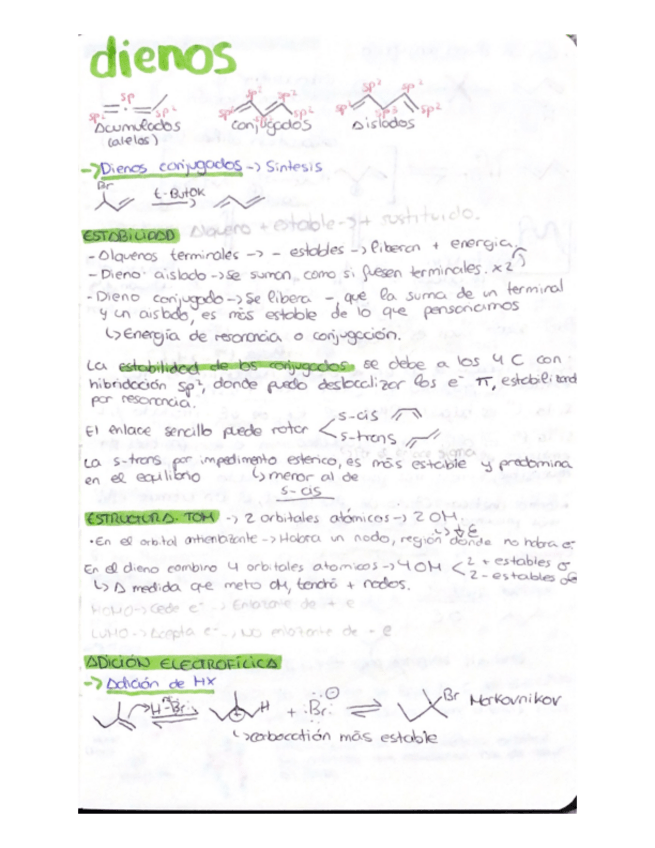 dienos
sp² sp sp² sp² sp² sp² sp² sp² sp² sp³ sp²
Acumulados conjugados Aislados
(alelos)
→ Dienos conjugados → Síntesis
Br t-ButOK
Alqueno + estable → + sustituido.
ESTABILIDAD
- Olquenos terminales → - estables → liberan + energía.
- Dieno aislado → Se suman, como si fuesen terminales. x2
- Dieno conjugado → Se libera -, que la suma de un terminal
y un aislado, es más estable de lo que pensábamos
↳ Energía de resonancia o conjugación.
La estabilidad de los conjugados se debe a los 4 C con
hibridación sp², donde puedo deslocalizar los e⁻ π,
por resonancia.
s-cis
El enlace sencillo puede rotar
s-trans
La s-trans por impedimento estérico, es más estable y predomina
en el equilibrio ↳ menor al de
s-cis
ESTRUCTURA. TOM → 2 orbitales atómicos → 2 OM.
↳ ↓ E
• En el orbital antienlazante → Habrá un nodo, región donde no habrá e⁻
En el dieno combino 4 orbitales atomicos → 4 OM 2 + estables σ
2 - estables
↳ A medida que meto OM, tendré + nodos.
HOMO → Cede e⁻ → Enlazante de + e
LUMO → Acepta e⁻ → NO enlazante de - e
ADICIÓN ELECTROFÍLICA
→ Adición de HX
H-Br H + :Br: ⊖ ⇌ Br Markovnikov
↳ carbocatión más estable